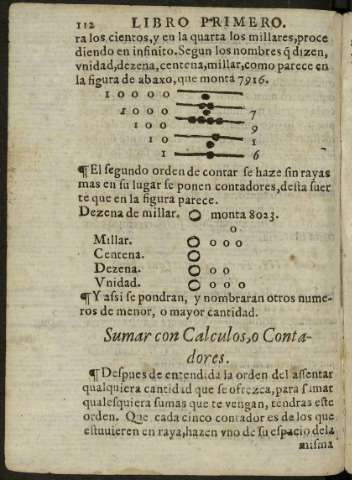 112 LIBRO PRIMERO.
ra los cientos, y en la quarta los millares, proce
diendo en infinito. Segun los nombres q̃ dizen,
vnidad, dezena, centena, millar, como parece en
la figura de abaxo, que monta 7916.
1 0 0 0 0
1 0 0 0 7
1 0 0 9
1 0 1
1 6
¶ El segundo orden de contar se haze sin rayas
mas en su lugar se ponen contadores, desta suer
te que en la figura parece.
Dezena de millar. O monta 8023.
o
Millar. O o o o
Centena. O
Dezena. O o o
Vnidad. O o o o
¶ Y assi se pondran, y nombraràn otros nume-
ros de menor, o mayor cantidad.
Sumar con Calculos, o Conta-
dores.
¶ Despues de entendida la orden del assentar
qualquiera cantidad que se ofrezca, para sumar
qualesquiera sumas que te vengan, tendras este
orden. Que cada cinco contadores de los que
estuuieren en raya, hazen vno de su espacio dela
misma